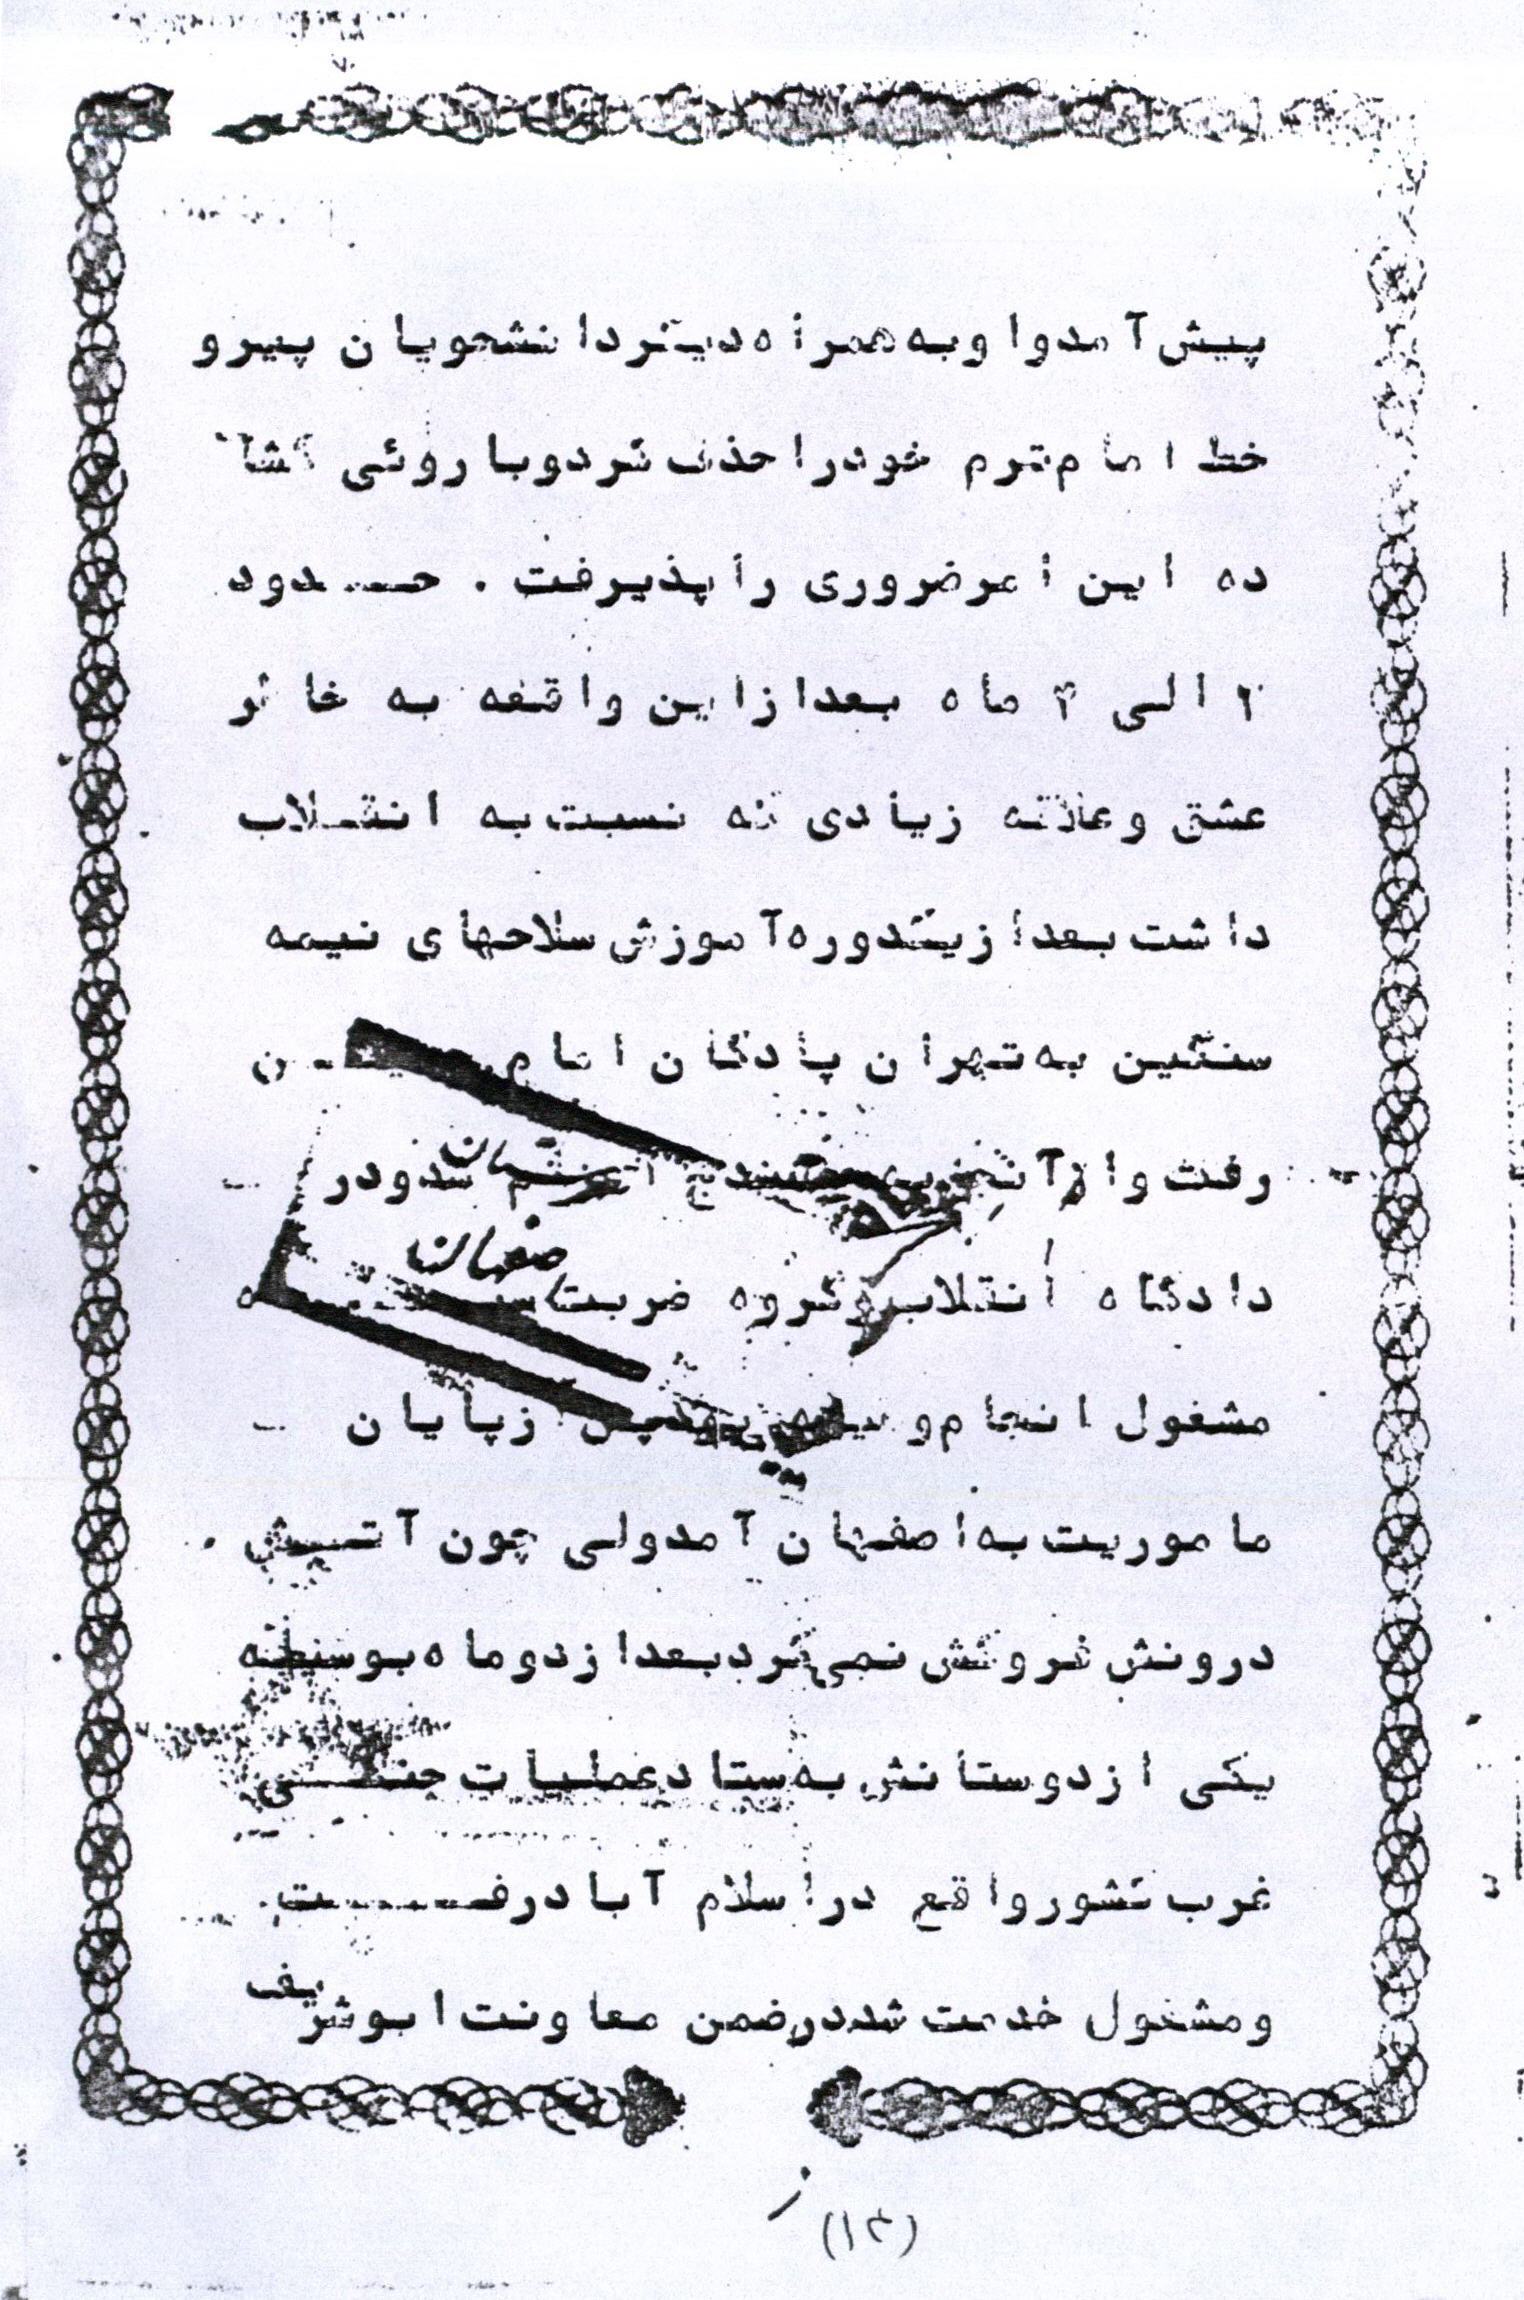 پیش آمد و او به همراه دیگر دانشجویان پیرو
خط امام ترم خود را حذف کرد و با روئی گشا
ده این امر ضروری را پذیرفت . حدود
۲ الی ۴ ماه بعد از این واقعه به خاطر
عشق و علاقه زیادی که نسبت به انقلاب
داشت بعد از یکدوره آموزش سلاحهای نیمه
سنگین به تهران پادگان امام
رفت و از آنجا به سنندج اعزام شد و در
دادگاه انقلاب و گروه ضربت
مشغول انجام پس از پایان
ماموریت به اصفهان آمد ولی چون آتش
درونش فروکش نمی‌کرد بعد از دو ماه بوسیله
یکی از دوستانش به ستاد عملیات جنگی
غرب کشور واقع در اسلام آباد رفت
و مشغول خدمت شد در ضمن معاونت ابوشریف
(۱۳)